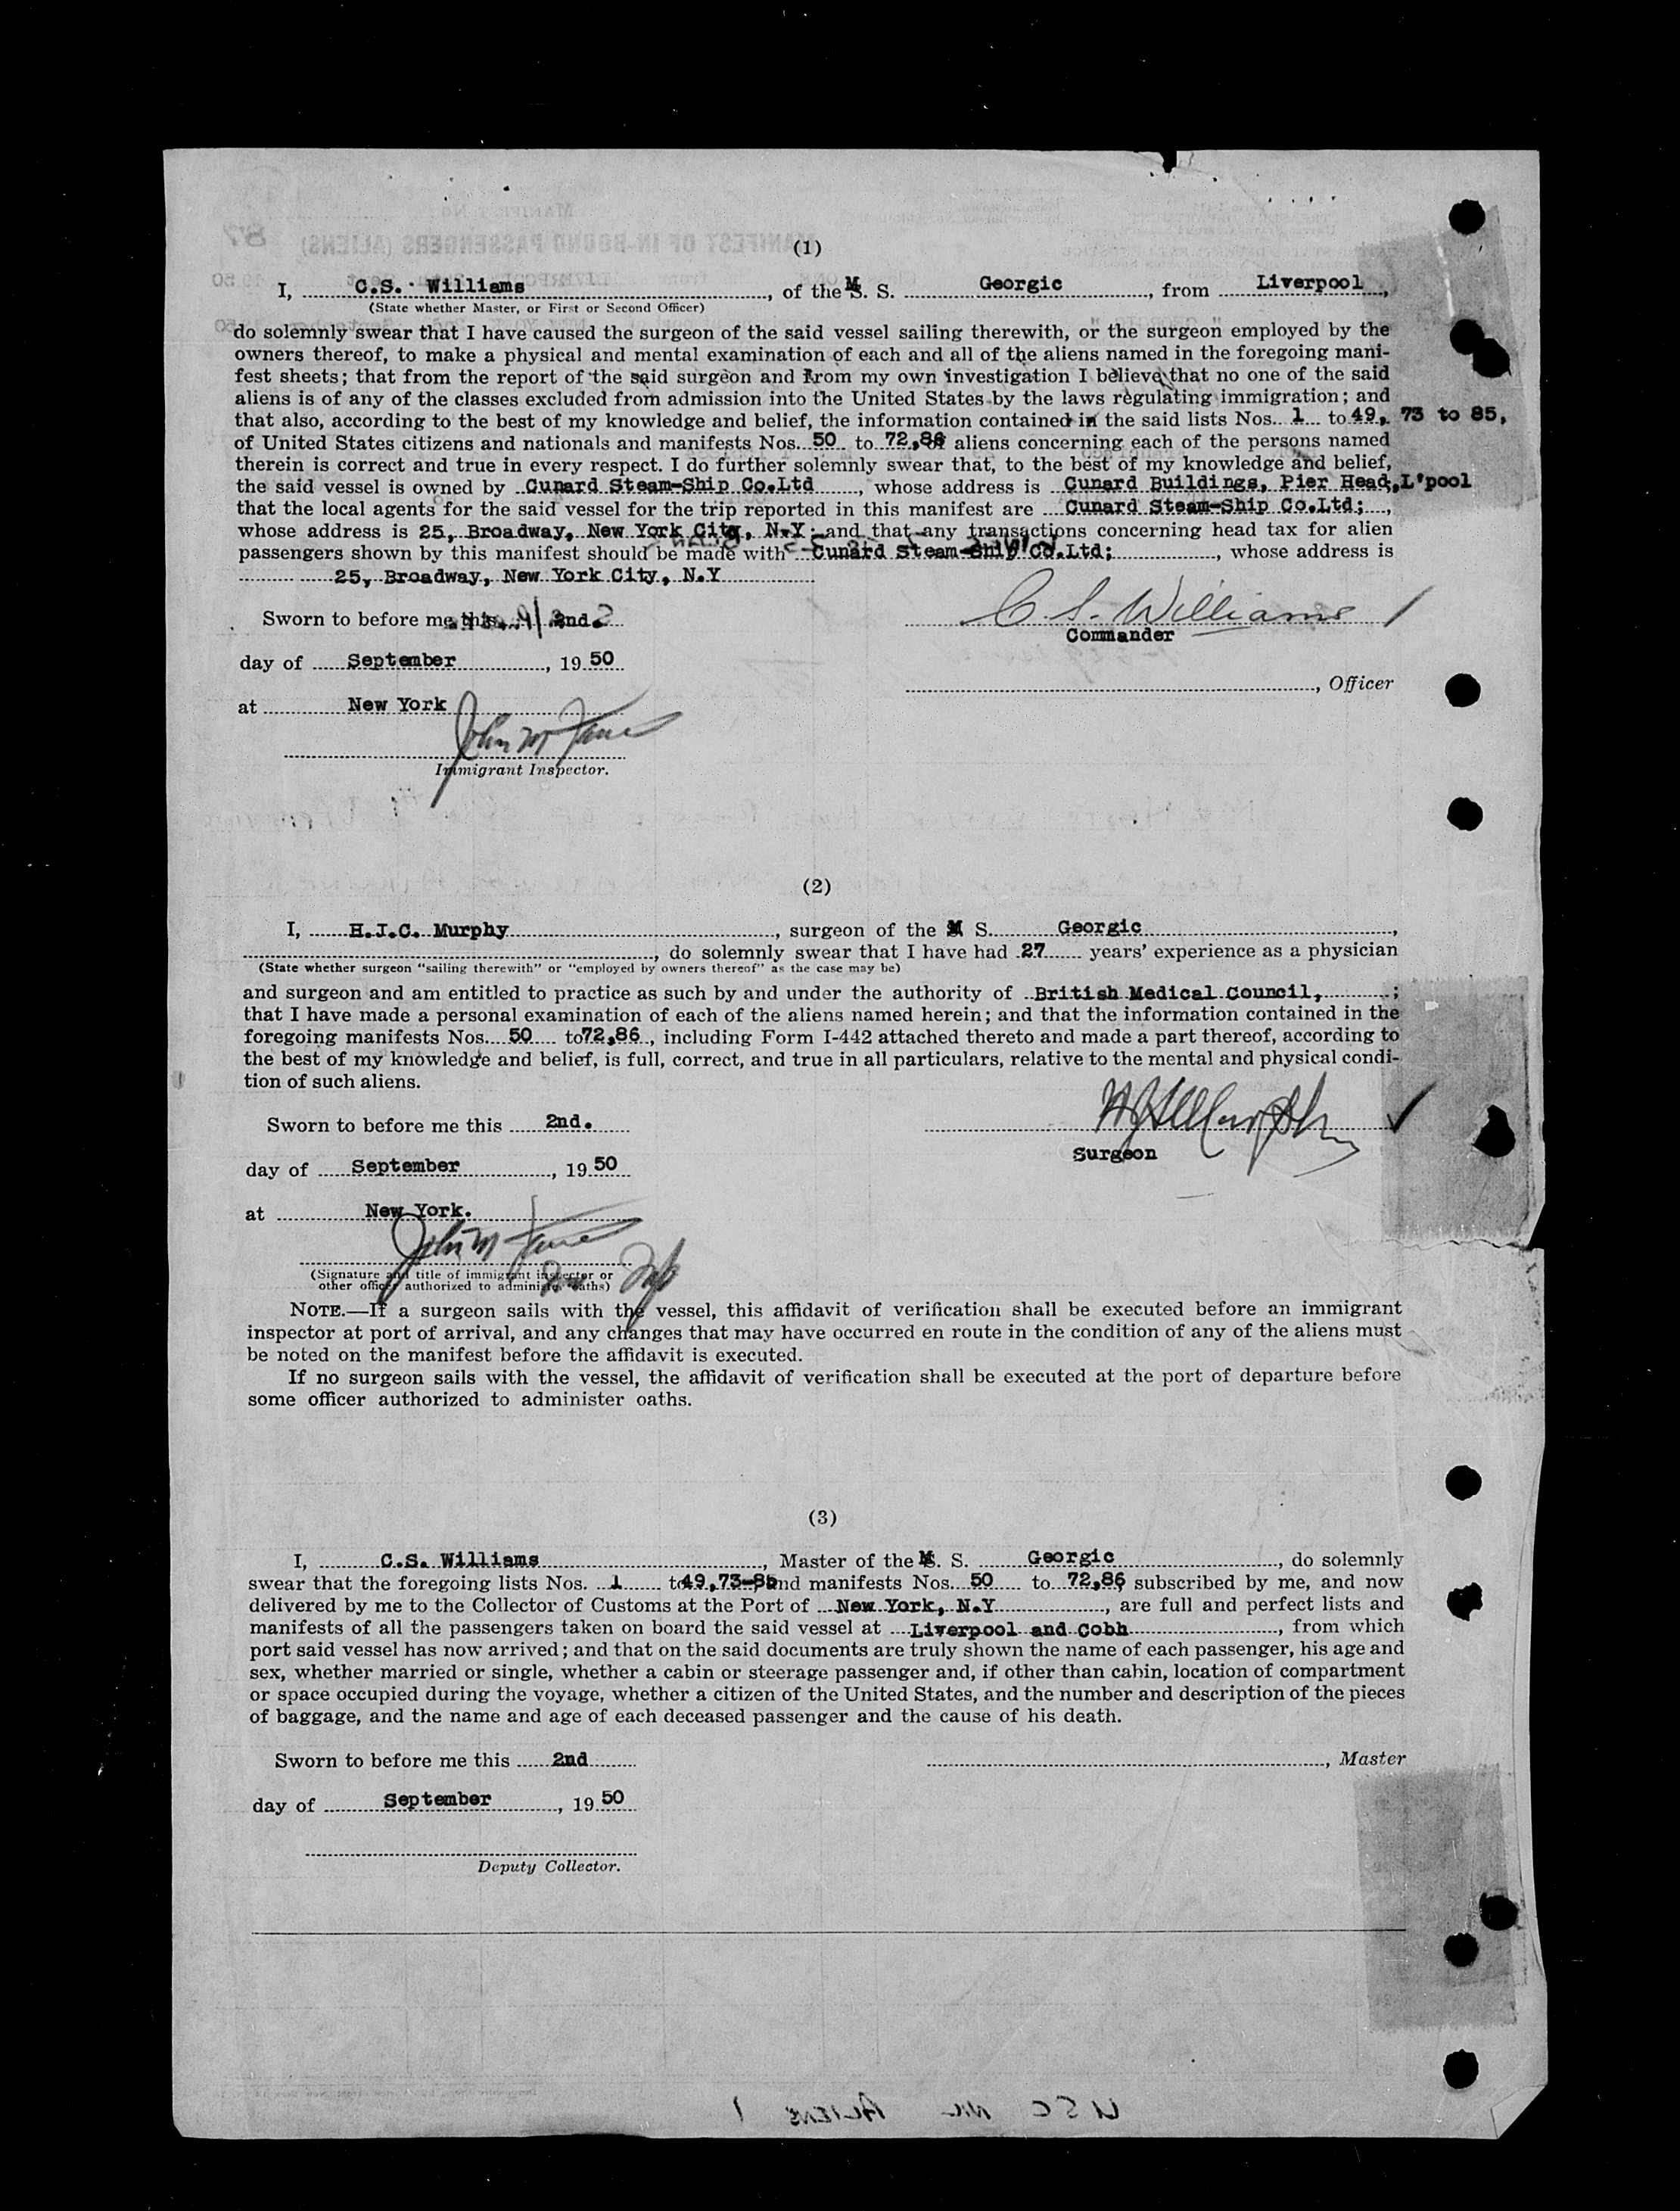 (1)
I, C.S. Williams, of the M. S. Georgic, from Liverpool,
(State whether Master, or First or Second Officer)
do solemnly swear that I have caused the surgeon of the said vessel sailing therewith, or the surgeon employed by the
owners thereof, to make a physical and mental examination of each and all of the aliens named in the foregoing mani-
fest sheets; that from the report of the said surgeon and from my own investigation I believe that no one of the said
aliens is of any of the classes excluded from admission into the United States by the laws regulating immigration; and
that also, according to the best of my knowledge and belief, the information contained in the said lists Nos. 1 to 49, 73 to 85,
of United States citizens and nationals and manifests Nos. 50 to 72,86 aliens concerning each of the persons named
therein is correct and true in every respect. I do further solemnly swear that, to the best of my knowledge and belief,
the said vessel is owned by Cunard Steam-Ship Co.Ltd, whose address is Cunard Buildings, Pier Head, L'pool
that the local agents for the said vessel for the trip reported in this manifest are Cunard Steam-Ship Co.Ltd;,
whose address is 25, Broadway, New York City, N.Y; and that any transactions concerning head tax for alien
passengers shown by this manifest should be made with Cunard Steam-Ship Co.Ltd;, whose address is
25, Broadway, New York City, N.Y
Sworn to before me this 2nd.
C. S. Williams
Commander
day of September, 1950
, Officer
at New York
Immigrant Inspector.
(2)
I, H.J.C. Murphy, surgeon of the M S. Georgic,
, do solemnly swear that I have had 27 years' experience as a physician
(State whether surgeon "sailing therewith" or "employed by owners thereof" as the case may be)
and surgeon and am entitled to practice as such by and under the authority of British Medical Council,;
that I have made a personal examination of each of the aliens named herein; and that the information contained in the
foregoing manifests Nos. 50 to 72,86, including Form I-442 attached thereto and made a part thereof, according to
the best of my knowledge and belief, is full, correct, and true in all particulars, relative to the mental and physical condi-
tion of such aliens.
Sworn to before me this 2nd.
Surgeon
day of September, 1950
at New York.
(Signature and title of immigrant inspector or
other officer authorized to administer oaths)
NOTE.—If a surgeon sails with the vessel, this affidavit of verification shall be executed before an immigrant
inspector at port of arrival, and any changes that may have occurred en route in the condition of any of the aliens must
be noted on the manifest before the affidavit is executed.
If no surgeon sails with the vessel, the affidavit of verification shall be executed at the port of departure before
some officer authorized to administer oaths.
(3)
I, C.S. Williams, Master of the M. S. Georgic, do solemnly
swear that the foregoing lists Nos. 1 to 49,73-85 and manifests Nos. 50 to 72,86 subscribed by me, and now
delivered by me to the Collector of Customs at the Port of New York, N.Y, are full and perfect lists and
manifests of all the passengers taken on board the said vessel at Liverpool and Cobh, from which
port said vessel has now arrived; and that on the said documents are truly shown the name of each passenger, his age and
sex, whether married or single, whether a cabin or steerage passenger and, if other than cabin, location of compartment
or space occupied during the voyage, whether a citizen of the United States, and the number and description of the pieces
of baggage, and the name and age of each deceased passenger and the cause of his death.
Sworn to before me this 2nd
, Master
day of September, 1950
Deputy Collector.